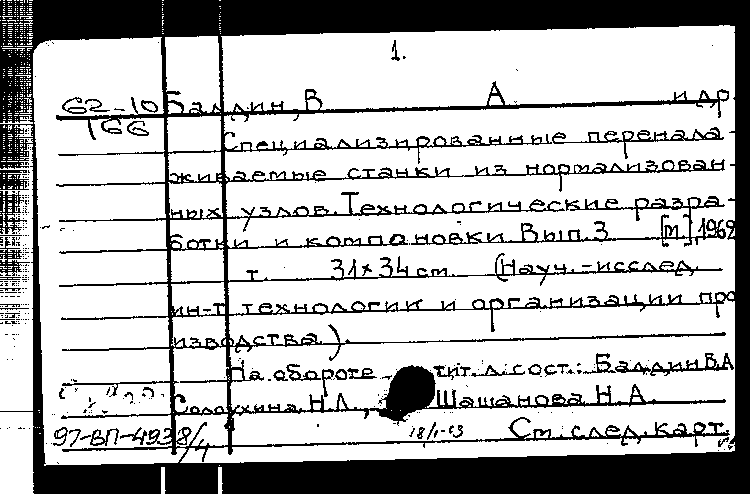 1.
62-10 Балдин, В А и др.
166
Специализированные перенала-
живаемые станки из нормализован-
ных узлов. Технологические разра-
ботки и компоновки. Вып. 3 [m.], 1962
т. 31×34 см. (Науч.-исслед.
ин-т технологии и организации про
изводства).
На обороте тит. л. сост.: Балдин В.А
Солоухина Н.Л., Шашанова Н.А.
97-ВП-4938/4 См. след. карт.